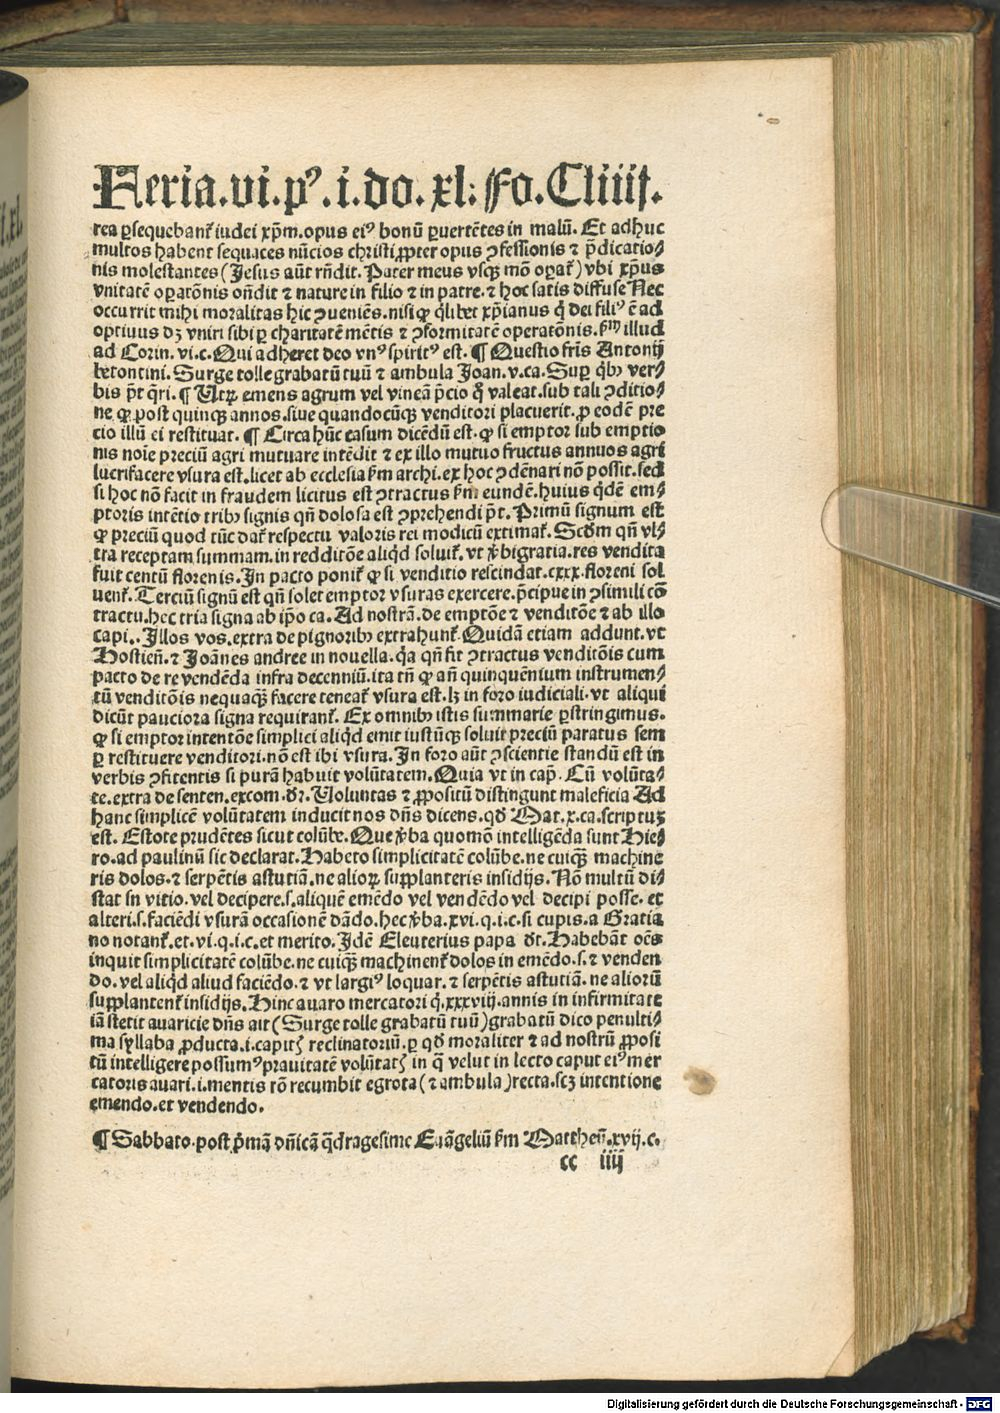 Feria.vi.pꝰ.i.do.xl: Fo.Cliiij.
rea ꝑsequebant᷑ iudei xp̄m.opus eiꝰ bonū ꝑuertētes in malū. Et adhuc
multos habent sequaces nūcios christi ꝓpter opus ꝯfessionis ⁊ p̄dicatio⸗
nis molestantes (Jesus aūt rn̄dit. Pater meus vsqꝫ mō oꝑat᷑) vbi xp̄us
vnitatē oꝑatōnis on̄dit ⁊ nature in filio ⁊ in patre.⁊ hoc satis diffuse Nec
occurrit mihi moralitas hic ꝯueniēs.nisi ꝙ q̄libet xp̄ianus q̄ dei filiꝰ ē ad
optiuus dꝫ vniri sibi ꝑ charitatē mētis ⁊ ꝯformitatē operatōnis. ẜm illud
ad Corin. vi.c. Qui adheret deo vnꝰ spiritꝰ est. ¶ Questio fr̄is Antonij
betontini. Surge tolle grabatū tuū ⁊ ambula Joan. v.ca. Suꝑ q̄bꝫ ver⸗
bis p̄t q̄ri. ¶ Utꝝ emens agrum vel vineā p̄cio q̄ valeat.sub tali ꝯditio⸗
ne ꝙ post quinqꝫ annos.siue quandocūqꝫ venditori placuerit.ꝓ eodē pre
cio illū ei restituat. ¶ Circa hūc casum dicēdū est.ꝙ si emptor sub emptio
nis noīe preciū agri mutuare intēdit ⁊ ex illo mutuo fructus annuos agri
lucrifacere vsura est.licet ab ecclesia ẜm archi.ex hoc ꝯdēnari nō possit.sed
si hoc nō facit in fraudem licitus est ꝯtractus ẜm eundē.huius q̄dē em⸗
ptoris intētio tribꝫ signis qn̄ dolosa est ꝯprehendi p̄t. Primū signum est
ꝙ preciū quod tūc dat᷑ respectu valoris rei modicū extimat᷑. Scd̄m qn̄ vl⸗
tra receptam summam.in redditōe aliq̄d soluit᷑. vt v̄bi gratia.res vendita
fuit centū florenis. In pacto ponit᷑ ꝙ si venditio rescindat᷑.cxxx.floreni sol
uent᷑. Terciū signū est qn̄ solet emptor vsuras exercere.p̄cipue in ꝯsimili cō
tractu.hec tria signa ab ip̄o ca. Ad nostrā.de emptōe ⁊ venditōe ⁊ ab illo
capi.. Illos vos.extra de pignoribꝫ extrahunt᷑. Quidā etiam addunt.vt
Hostieñ.⁊ Joānes andree in nouella.q̄a qn̄ fit ꝯtractus venditōis cum
pacto de re vendēda infra decenniū.ita tn̄ ꝙ an̄ quinquēnium instrumen⸗
tū venditōis nequaqꝫ̄ facere teneat᷑ vsura est.lꝫ in foro iudiciali.vt aliqui
dicūt pauciora signa requirant᷑. Ex omnibꝫ istis summarie ꝑstringimus.
ꝙ si emptor intentōe simplici aliq̄d emit iustūqꝫ soluit preciū paratus sem
ꝑ restituere venditori.nō est ibi vsura. In foro aūt ꝯscientie standū est in
verbis ꝯfitentis si purā habuit volūtatem. Quia vt in cap̄. Cū volūta⸗
te.extra de senten.excom.d̄r. Uoluntas ⁊ ꝓpositū distingunt maleficia Ad
hanc simplicē volūtatem inducit nos dn̄s dicens.qd̄ Mat.x.ca.scriptuꝫ
est. Estote prudētes sicut colūbe. Que v̄ba quomō intelligēda sunt Hie⸗
ro.ad paulinū sic declarat. Habeto simplicitatē colūbe.ne cuiqꝫ̄ machine
ris dolos.⁊ serpētis astutiā.ne alioꝝ supplanteris insidijs. Nō multū di⸗
stat in vitio.vel decipere.s.aliquē emēdo vel vendēdo vel decipi posse. et
alteri.s.faciēdi vsurā occasionē dādo.hec v̄ba.xvi.q.i.c.si cupis.a Gratia
no notant᷑.et.vi.q.i.c.et merito. Idē Eleuterius papa d̄t. Habebāt oēs
inquit simplicitatē colūbe.ne cuiqꝫ̄ machinent᷑ dolos in emēdo.s.⁊ venden
do.vel aliq̄d aliud faciēdo.⁊ vt largiꝰ loquar.⁊ serpētis astutiā.ne aliorū
supplantent᷑ insidijs. Hinc auaro mercatori q̄.xxxviij.annis in infirmitate
iā stetit auaricie dn̄s ait (Surge tolle grabatū tuū) grabatū dico penulti⸗
ma syllaba ꝓducta.i.capitꝭ reclinatoriū.ꝑ qd̄ moraliter ⁊ ad nostrū ꝓposi
tū intelligere possumꝰ prauitatē volūtatꝭ in q̄ velut in lecto caput eiꝰ mer
catoris auari.i.mentis rō recumbit egrota (⁊ ambula) recta.scꝫ intentione
emendo.et vendendo.
¶ Sabbato.post p̄mā dn̄icā q̄dragesime Euāgeliū ẜm Mattheū.xvij.c.
cc iiij
Digitalisierung gefördert durch die Deutsche Forschungsgemeinschaft - DFG